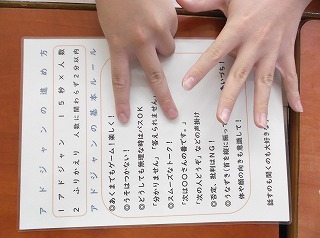 アドジャンの進め方
1 アドジャン 15秒×人数
2 ふりかえり 人数に関わらず2分以内
アドジャンの基本ルール
◎あくまでもゲーム！楽しく！
◎うそはつかない！
◎どうしても無理な時はパスOK
「分かりません」「答えられません」
◎スムーズなトーク！
「次は〇〇さんの番です。」
「次の人どうぞ」などの声掛け
◎否定、批判はNG！
◎うなずき(首を縦に振って
いづち！
体や顔の向きも意識して！
話すのも聞くのも大好き